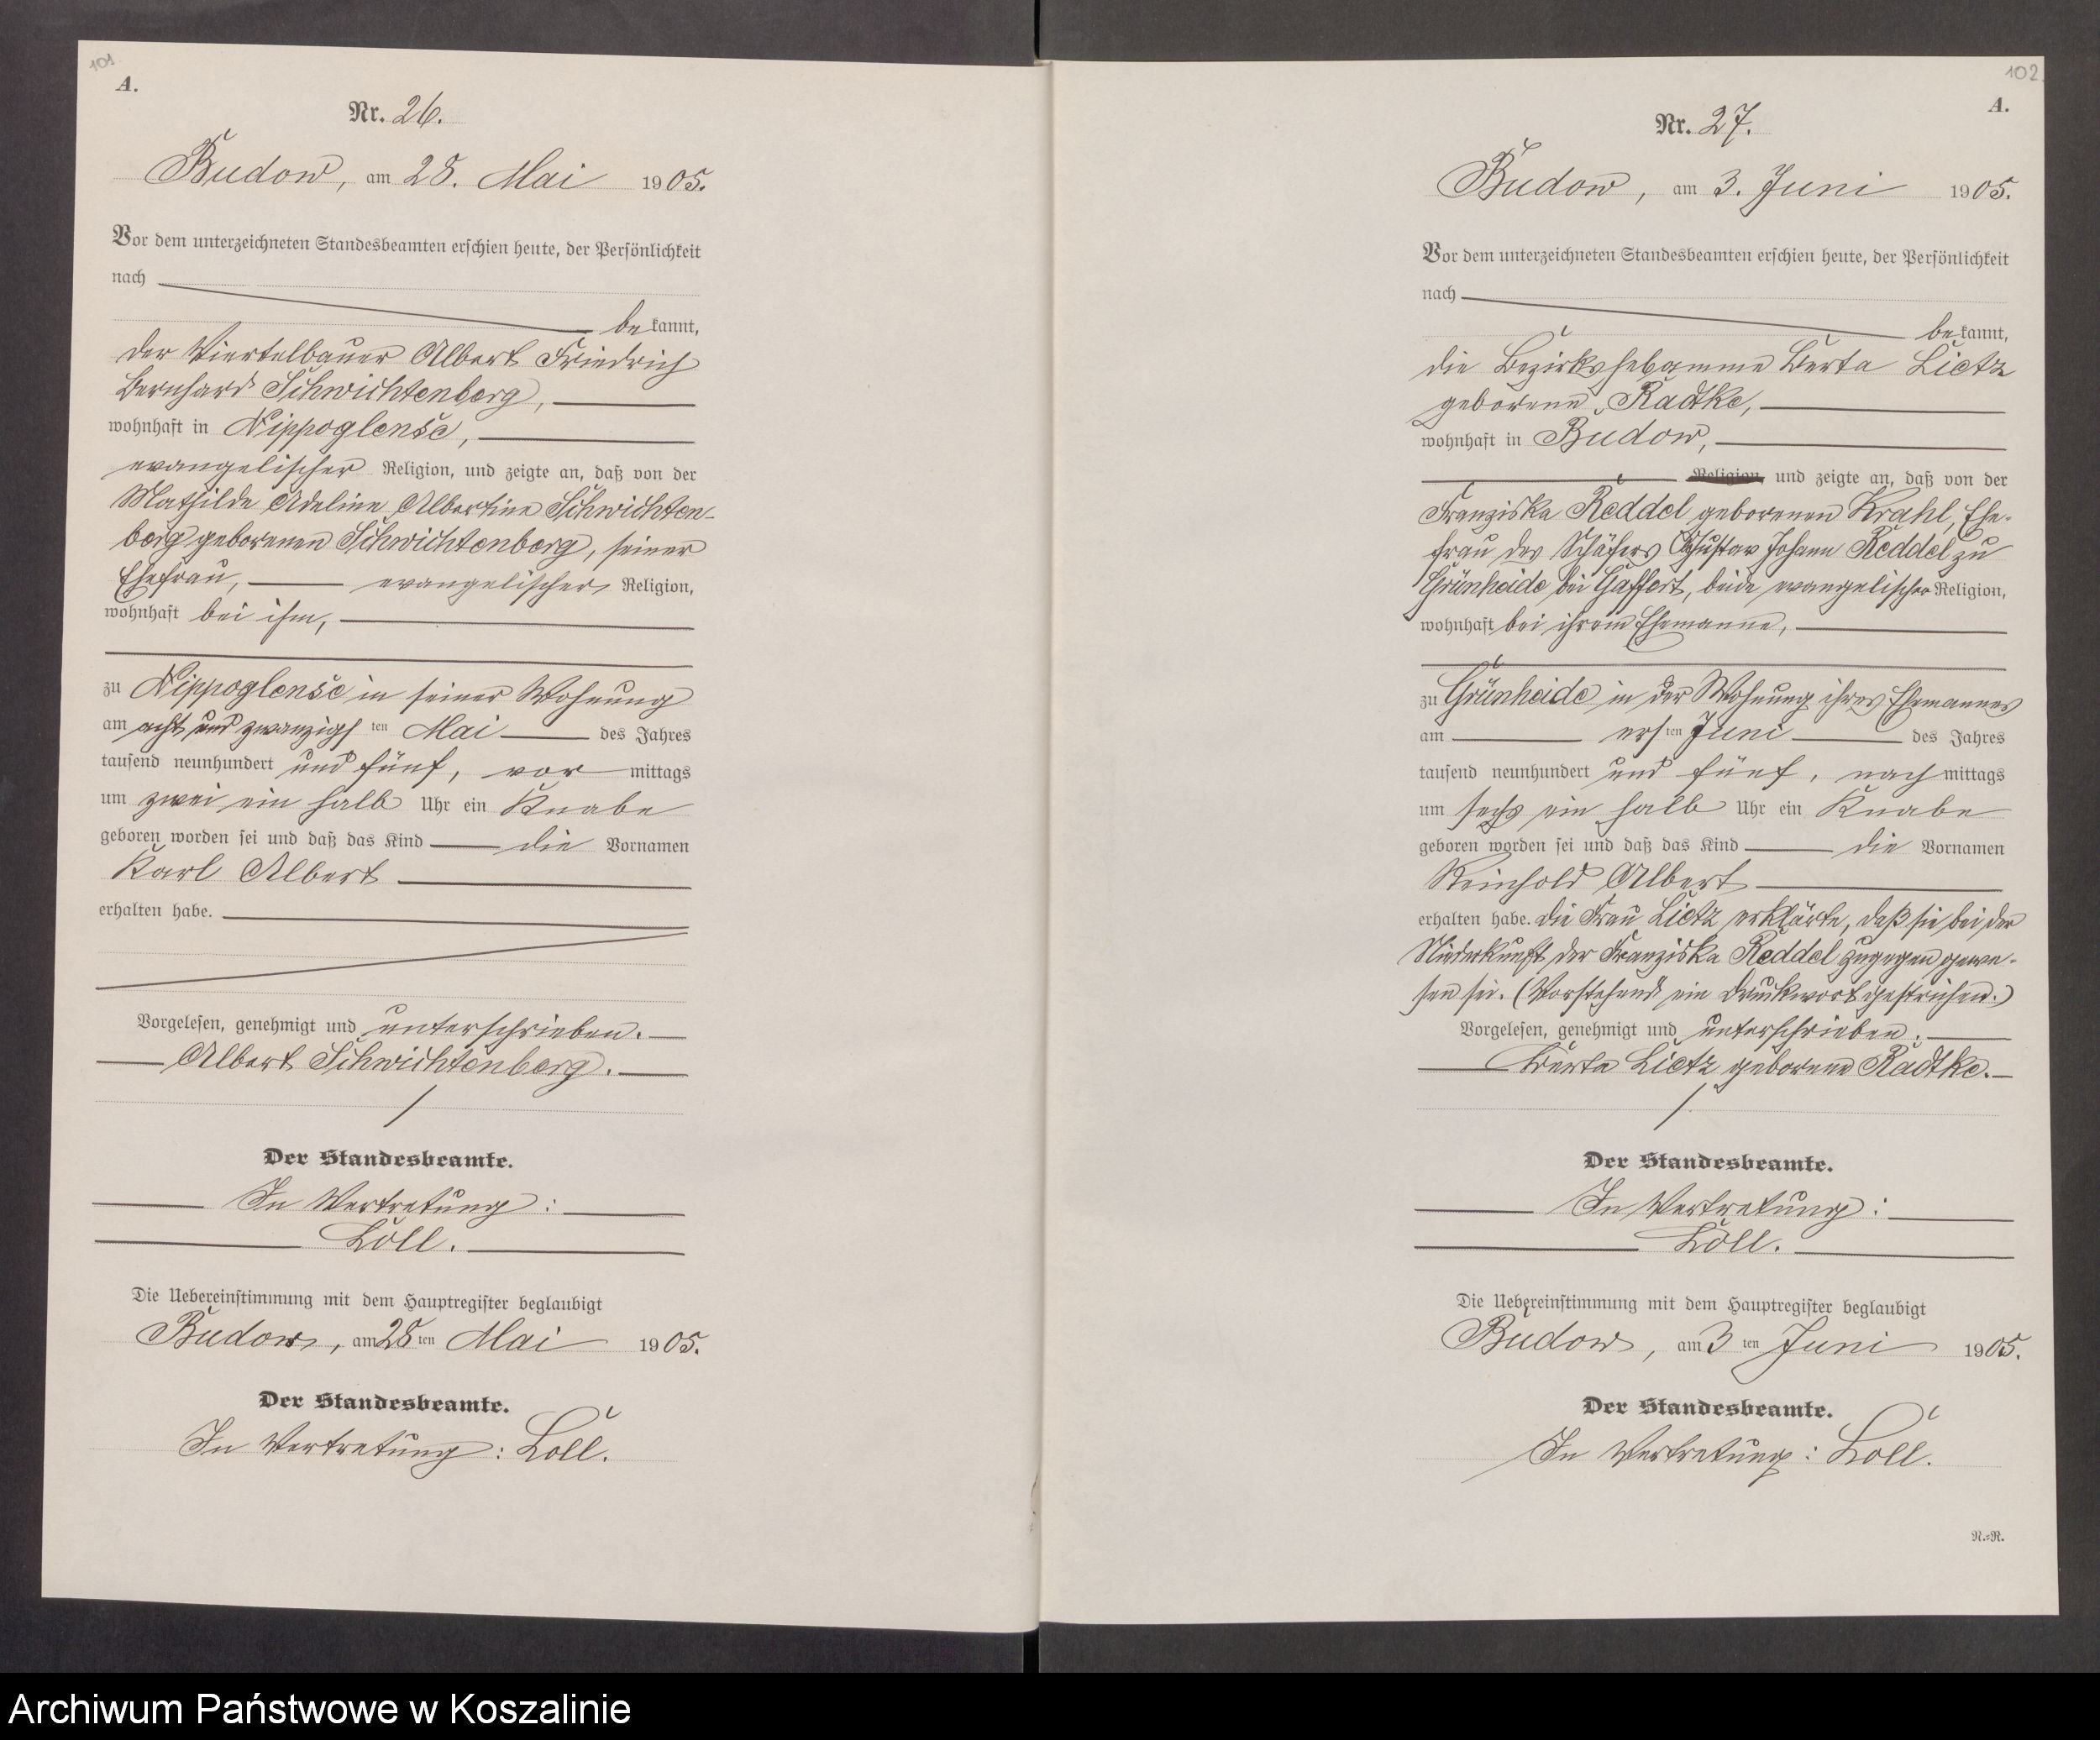 101
A.
Nr. 26.
Budow, am 28. Mai 1905.
Vor dem unterzeichneten Standesbeamten erschien heute, der Persönlichkeit
nach
bekannt,
der Viertelbauer Albert Friedrich
Bernhard Schwichtenberg,
wohnhaft in Nippoglense,
evangelischer Religion, und zeigte an, daß von der
Mathilde Adeline Albertine Schwichten-
berg geborenen Schwichtenberg, seiner
Ehefrau, evangelischer Religion,
wohnhaft bei ihm,
zu Nippoglense in seiner Wohnung
am acht und zwanzigsten Mai des Jahres
tausend neunhundert und fünf, vormittags
um zwei ein halb Uhr ein Knabe
geboren worden sei und daß das Kind die Vornamen
Karl Albert
erhalten habe.
Vorgelesen, genehmigt und unterschrieben.
Albert Schwichtenberg.
Der Standesbeamte.
In Vertretung:
Loll.
Die Uebereinstimmung mit dem Hauptregister beglaubigt
Budow, am 28ten Mai 1905.
Der Standesbeamte.
In Vertretung: Loll.
102.
A.
Nr. 27.
Budow, am 3. Juni 1905.
Vor dem unterzeichneten Standesbeamten erschien heute, der Persönlichkeit
nach
bekannt,
die Bezirkshebamme Berta Lietz
geborene Radtke,
wohnhaft in Budow,
Religion und zeigte an, daß von der
Franziska Reddel geborenen Krahl, Ehe-
frau des Schäfers Gustav Johann Reddel zu
Grünheide bei Gaffert, beide evangelischer Religion,
wohnhaft bei ihrem Ehemanne,
zu Grünheide in der Wohnung ihres Ehemannes
am ersten Juni des Jahres
tausend neunhundert und fünf, nachmittags
um sechs ein halb Uhr ein Knabe
geboren worden sei und daß das Kind die Vornamen
Reinhold Albert
erhalten habe. Die Frau Lietz erklärte, daß sie bei der
Niederkunft der Franziska Reddel zugegen gewe-
sen sei. (Vorstehend ein Druckwort gestrichen.)
Vorgelesen, genehmigt und unterschrieben.
Berta Lietz geborene Radtke.
Der Standesbeamte.
In Vertretung:
Loll.
Die Uebereinstimmung mit dem Hauptregister beglaubigt
Budow, am 3ten Juni 1905.
Der Standesbeamte.
In Vertretung: Loll.
N.=R.
Archiwum Państwowe w Koszalinie